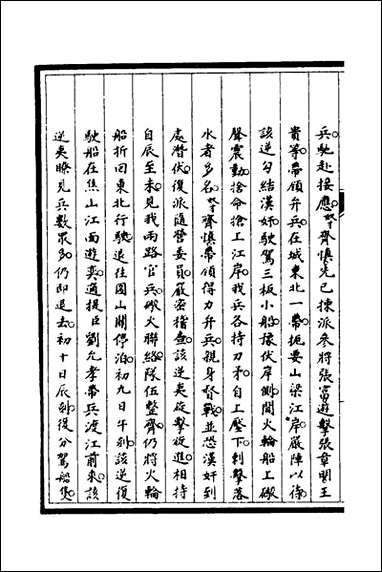 兵馳赴接應奴才齊慎先已揀派參將張富遊擊張章閻王
貴等帶領弁兵在城東北一帶扼要山梁江岸嚴陣以待
該逆勾結漢奸駛駕三板小船撥伏岸側聞火輪船上礮
聲震動捨命搶上江岸我兵各持刀矛自上壓下刺擊落
水者多名奴才齊慎帶領得力弁兵親身督戰並恐漢奸到
處潛伏復派隨營委員嚴密稽查該逆夷旋擊旋進相持
自辰至未見我兩路官兵礮火聯絡隊伍整齊仍將火輪
船折回東北行駛退往圌山關停泊初九日午刻該逆復
駛船在焦山江面遊奕適提臣劉允孝帶兵渡江前來該
逆夷瞭見兵數眾多仍即退去初十日辰刻復分駕船隻